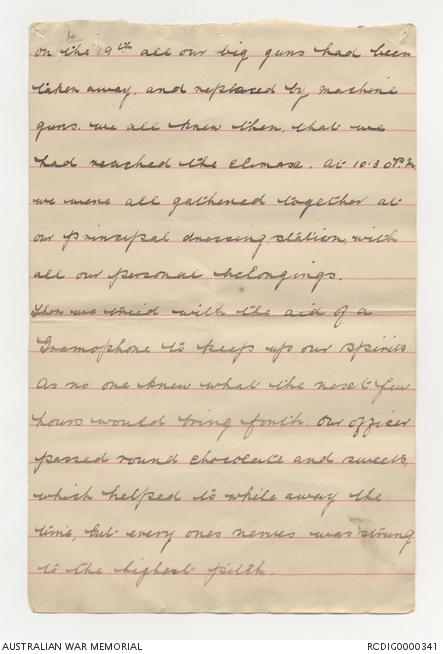 4
on the 19th all our big guns had been
taken away, and replaced by machine
guns. we all knew then, that we
had reached the climax. At 10.30P.M.
we were all gathered together at
our principal dressing station, with
all our personal belongings.
Then we tried with the aid of a
Gramophone to keep up our spirits
As no one knew what the next few
hours would bring forth. Our officer
passed round chocolate and sweets,
which helped to while away the
time, but every ones nerves was strung
to the highest pitch.
AUSTRALIAN WAR MEMORIAL
RCDIG0000341